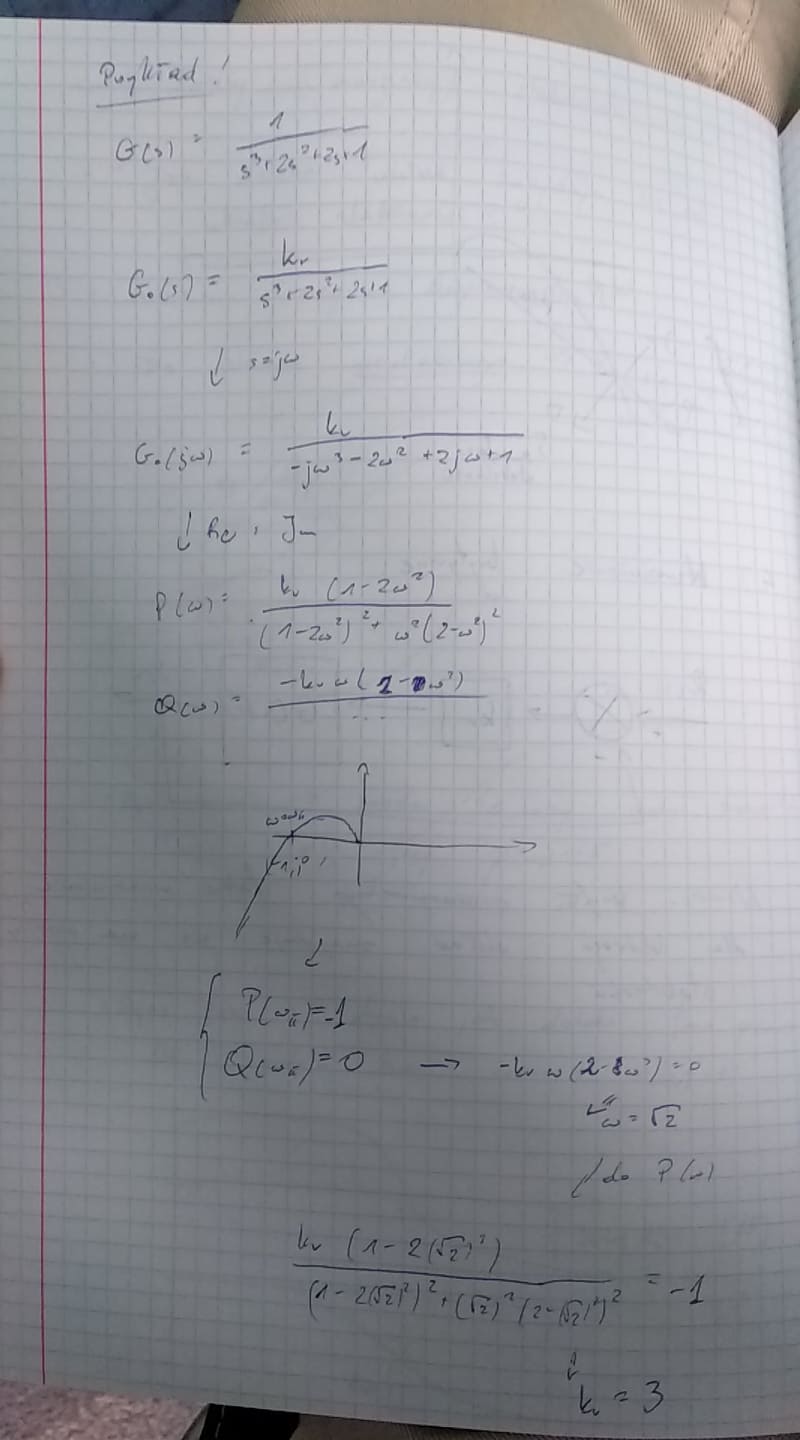 Przykład!
G(s) = 1 / (s³+2s²+2s+1)
G₀(s) = kᵣ / (s³+2s²+2s+1)
↓ s=jω
G₀(jω) = kᵣ / (-jω³-2ω²+2jω+1)
↓ Re, Im
P(ω) = kᵣ (1-2ω²) / ((1-2ω²)²+ω²(2-ω²)²)
Q(ω) = -kᵣ ω(2-ω²) / ...
-1,j0
↓
P(ωπ)=-1
Q(ωπ)=0 → -kᵣ ω(2-ω²)=0
ω=√2
do P(ω)
kᵣ (1-2(√2)²) / ((1-2(√2)²)²+(√2)²(2-(√2)²)²) = -1
↓
kᵣ = 3